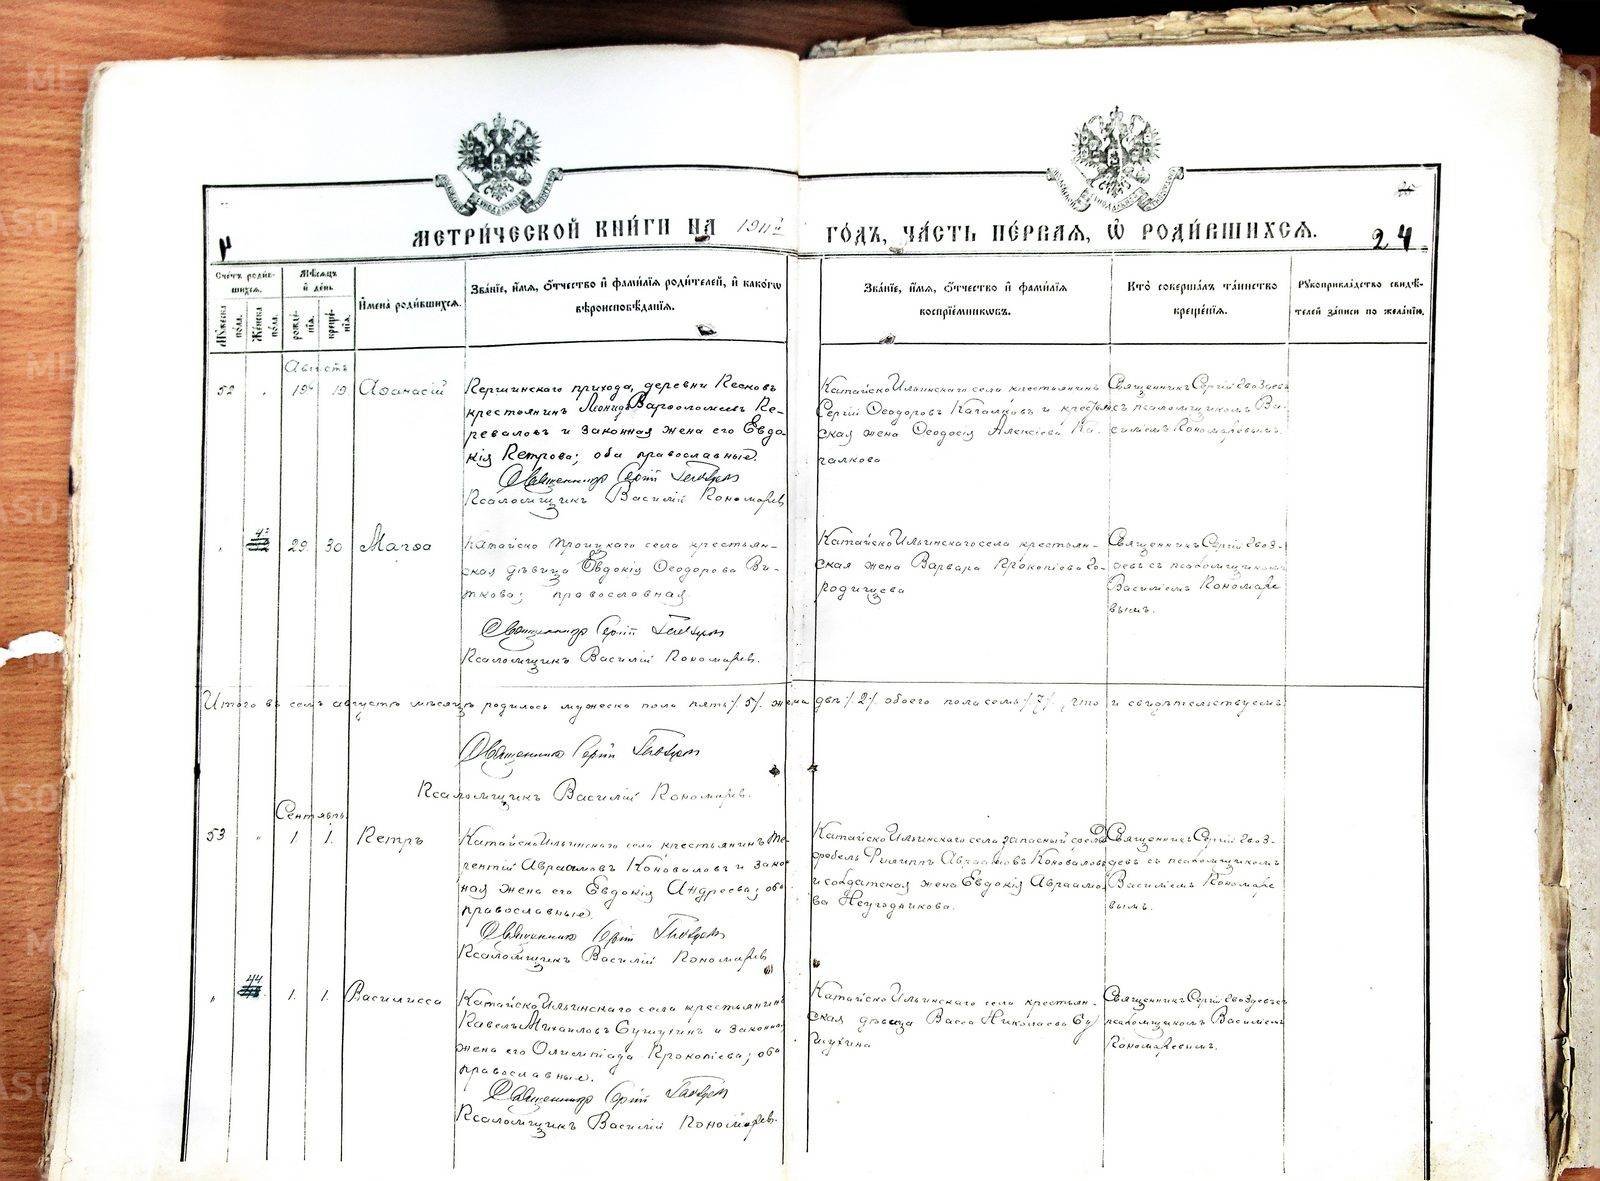 МЕТРИ́ЧЕСКОЙ КНИ́ГИ НА 1911й ГО́ДЪ, ЧА́СТЬ ПЕ́РВАЯ, Ѽ РОДИ́ВШИХСЯ.
24
Сче́тъ роди́в-
шихся.
Му́жеска по́ла.
Же́нска по́ла.
Мѣ́сяцъ и де́нь
рожде́-
нїя.
креще́-
нїя.
И́мена роди́вшихся.
Зва́нїе, и́мя, ѻ́тчество и фами́лїя роди́телей, и како́гѡ
вѣроисповѣ́данїя.
Зва́нїе, и́мя, ѻ́тчество и фами́лїя
воспрїе́мникѡвъ.
Кто́ соверша́лъ та́инство
креще́нїя.
Рꙋкоприкла́дство свидѣ́-
телей за́писи по жела́нїю.
Августъ
52 19 19 Аѳанасій
Першинскаго прихода, деревни Песковъ
крестьянинъ Леонидъ Варѳоломеевъ Пе-
реваловъ и законная жена его Евдо-
кія Петрова; оба православные.
Священникъ Сергій Гвоздевъ
Псаломщикъ Василій Пономаревъ
Катайско Ильинскаго села крестьянинъ
Сергій Ѳеодоровъ Качалковъ и крестьян-
ская жена Ѳеодосія Алексіева Ка-
чалкова
Священникъ Сергій Гвоздевъ
съ псаломщикомъ Ва-
силіемъ Пономаревымъ.
29 30 Марѳа
Катайско Троицкаго села крестьян-
ская дѣвица Евдокія Ѳеодорова Ви-
ткова; православная
Священникъ Сергій Гвоздевъ
Псаломщикъ Василій Пономаревъ.
Катайско Ильинскаго села крестьян-
ская жена Варвара Прокопіева Го-
родищева
Священникъ Сергій Гвоз-
девъ съ псаломщикомъ
Василіемъ Пономаре
вымъ.
Итого въ семъ августѣ мѣсяцѣ родилось мужеска пола пять /5/ женска двѣ /2/ обоего пола семь /7/, что и свидѣтельствуемъ
Священникъ Сергій Гвоздевъ
Псаломщикъ Василій Пономаревъ.
Сентябрь.
53 1. 1. Петръ
Катайско Ильинскаго села крестьянинъ Те-
рентій Авраамовъ Коноваловъ и закон
ная жена его Евдокія Андреева; оба
православные.
Священникъ Сергій Гвоздевъ
Псаломщикъ Василій Пономаревъ
Катайско Ильинскаго села запасный
Филиппъ Авраамовъ Коноваловъ
и солдатская жена Евдокія Авраамо-
ва Неугодникова.
Священникъ Сергій Гвоз-
девъ съ псаломщикомъ
Василіемъ Пономаре
вымъ.
44 1. 1. Василисса
Катайско Ильинскаго села крестьянинъ
Павелъ Михаиловъ Сушухинъ и законн.
жена его Олимпіада Прокопіева; оба
православные.
Священникъ Сергій Гвоздевъ
Псаломщикъ Василій Пономаревъ.
Катайско Ильинскаго села крестьян-
ская дѣвица Васса Николаева
Священникъ Сергій Гвоздевъ съ
псаломщикомъ Василіемъ
Пономаревымъ.